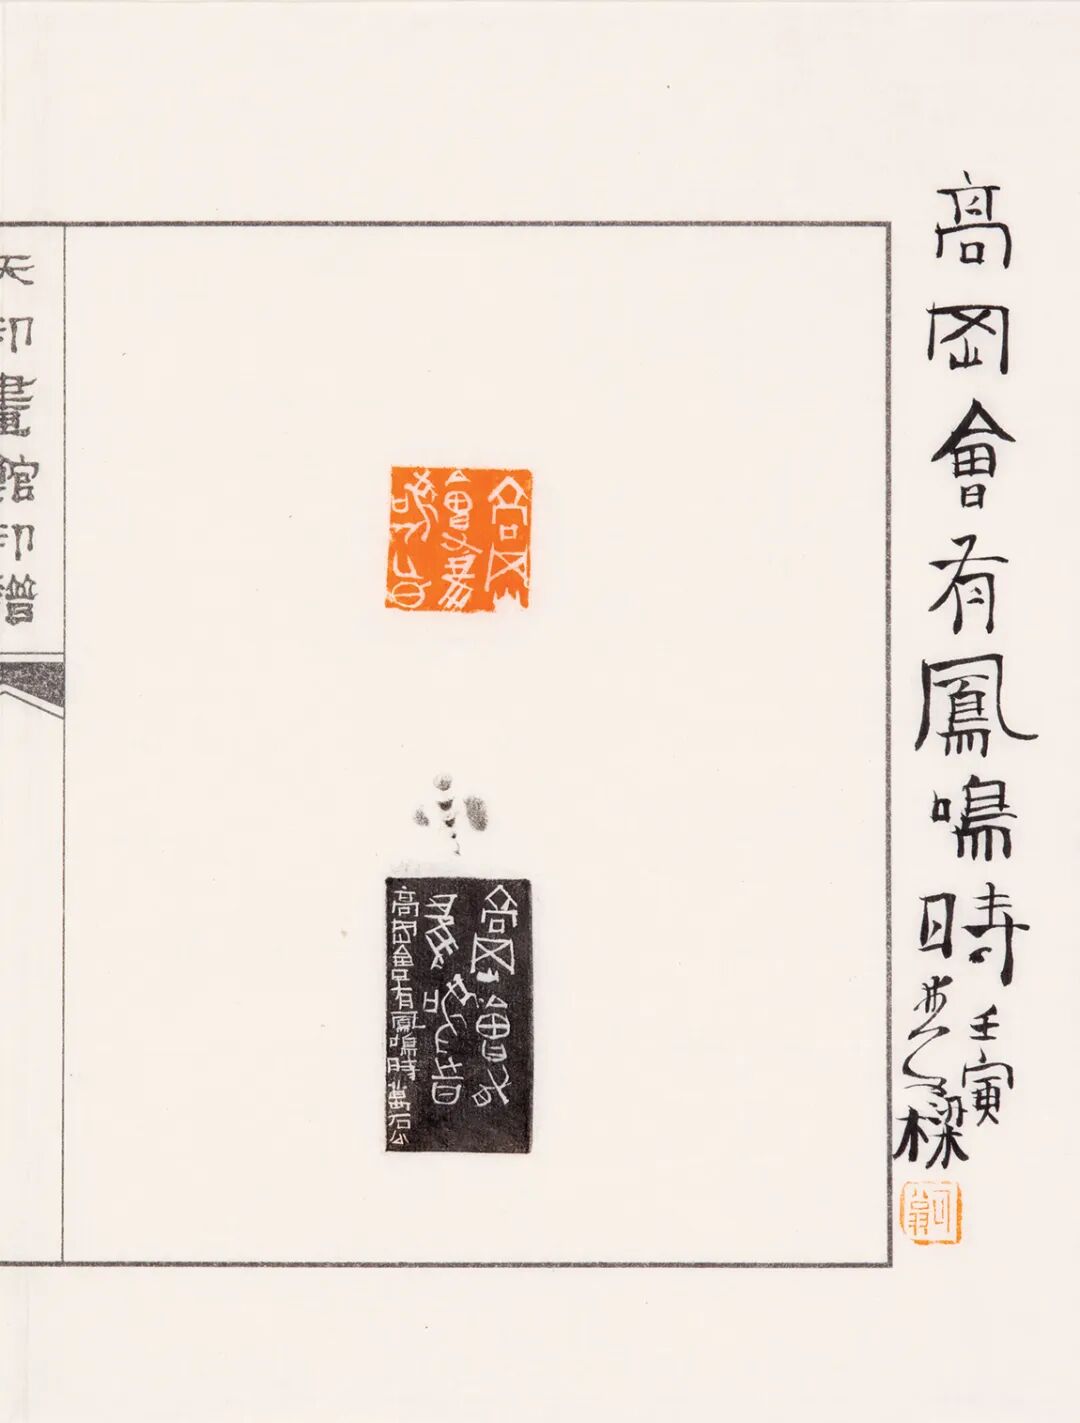 高岡會有鳳鳴時
壬寅
樑
高岡
會有鳳
鳴時
高岡會有
鳳鳴時
高岡會有鳳鳴時萬石公
天印畫館印譜